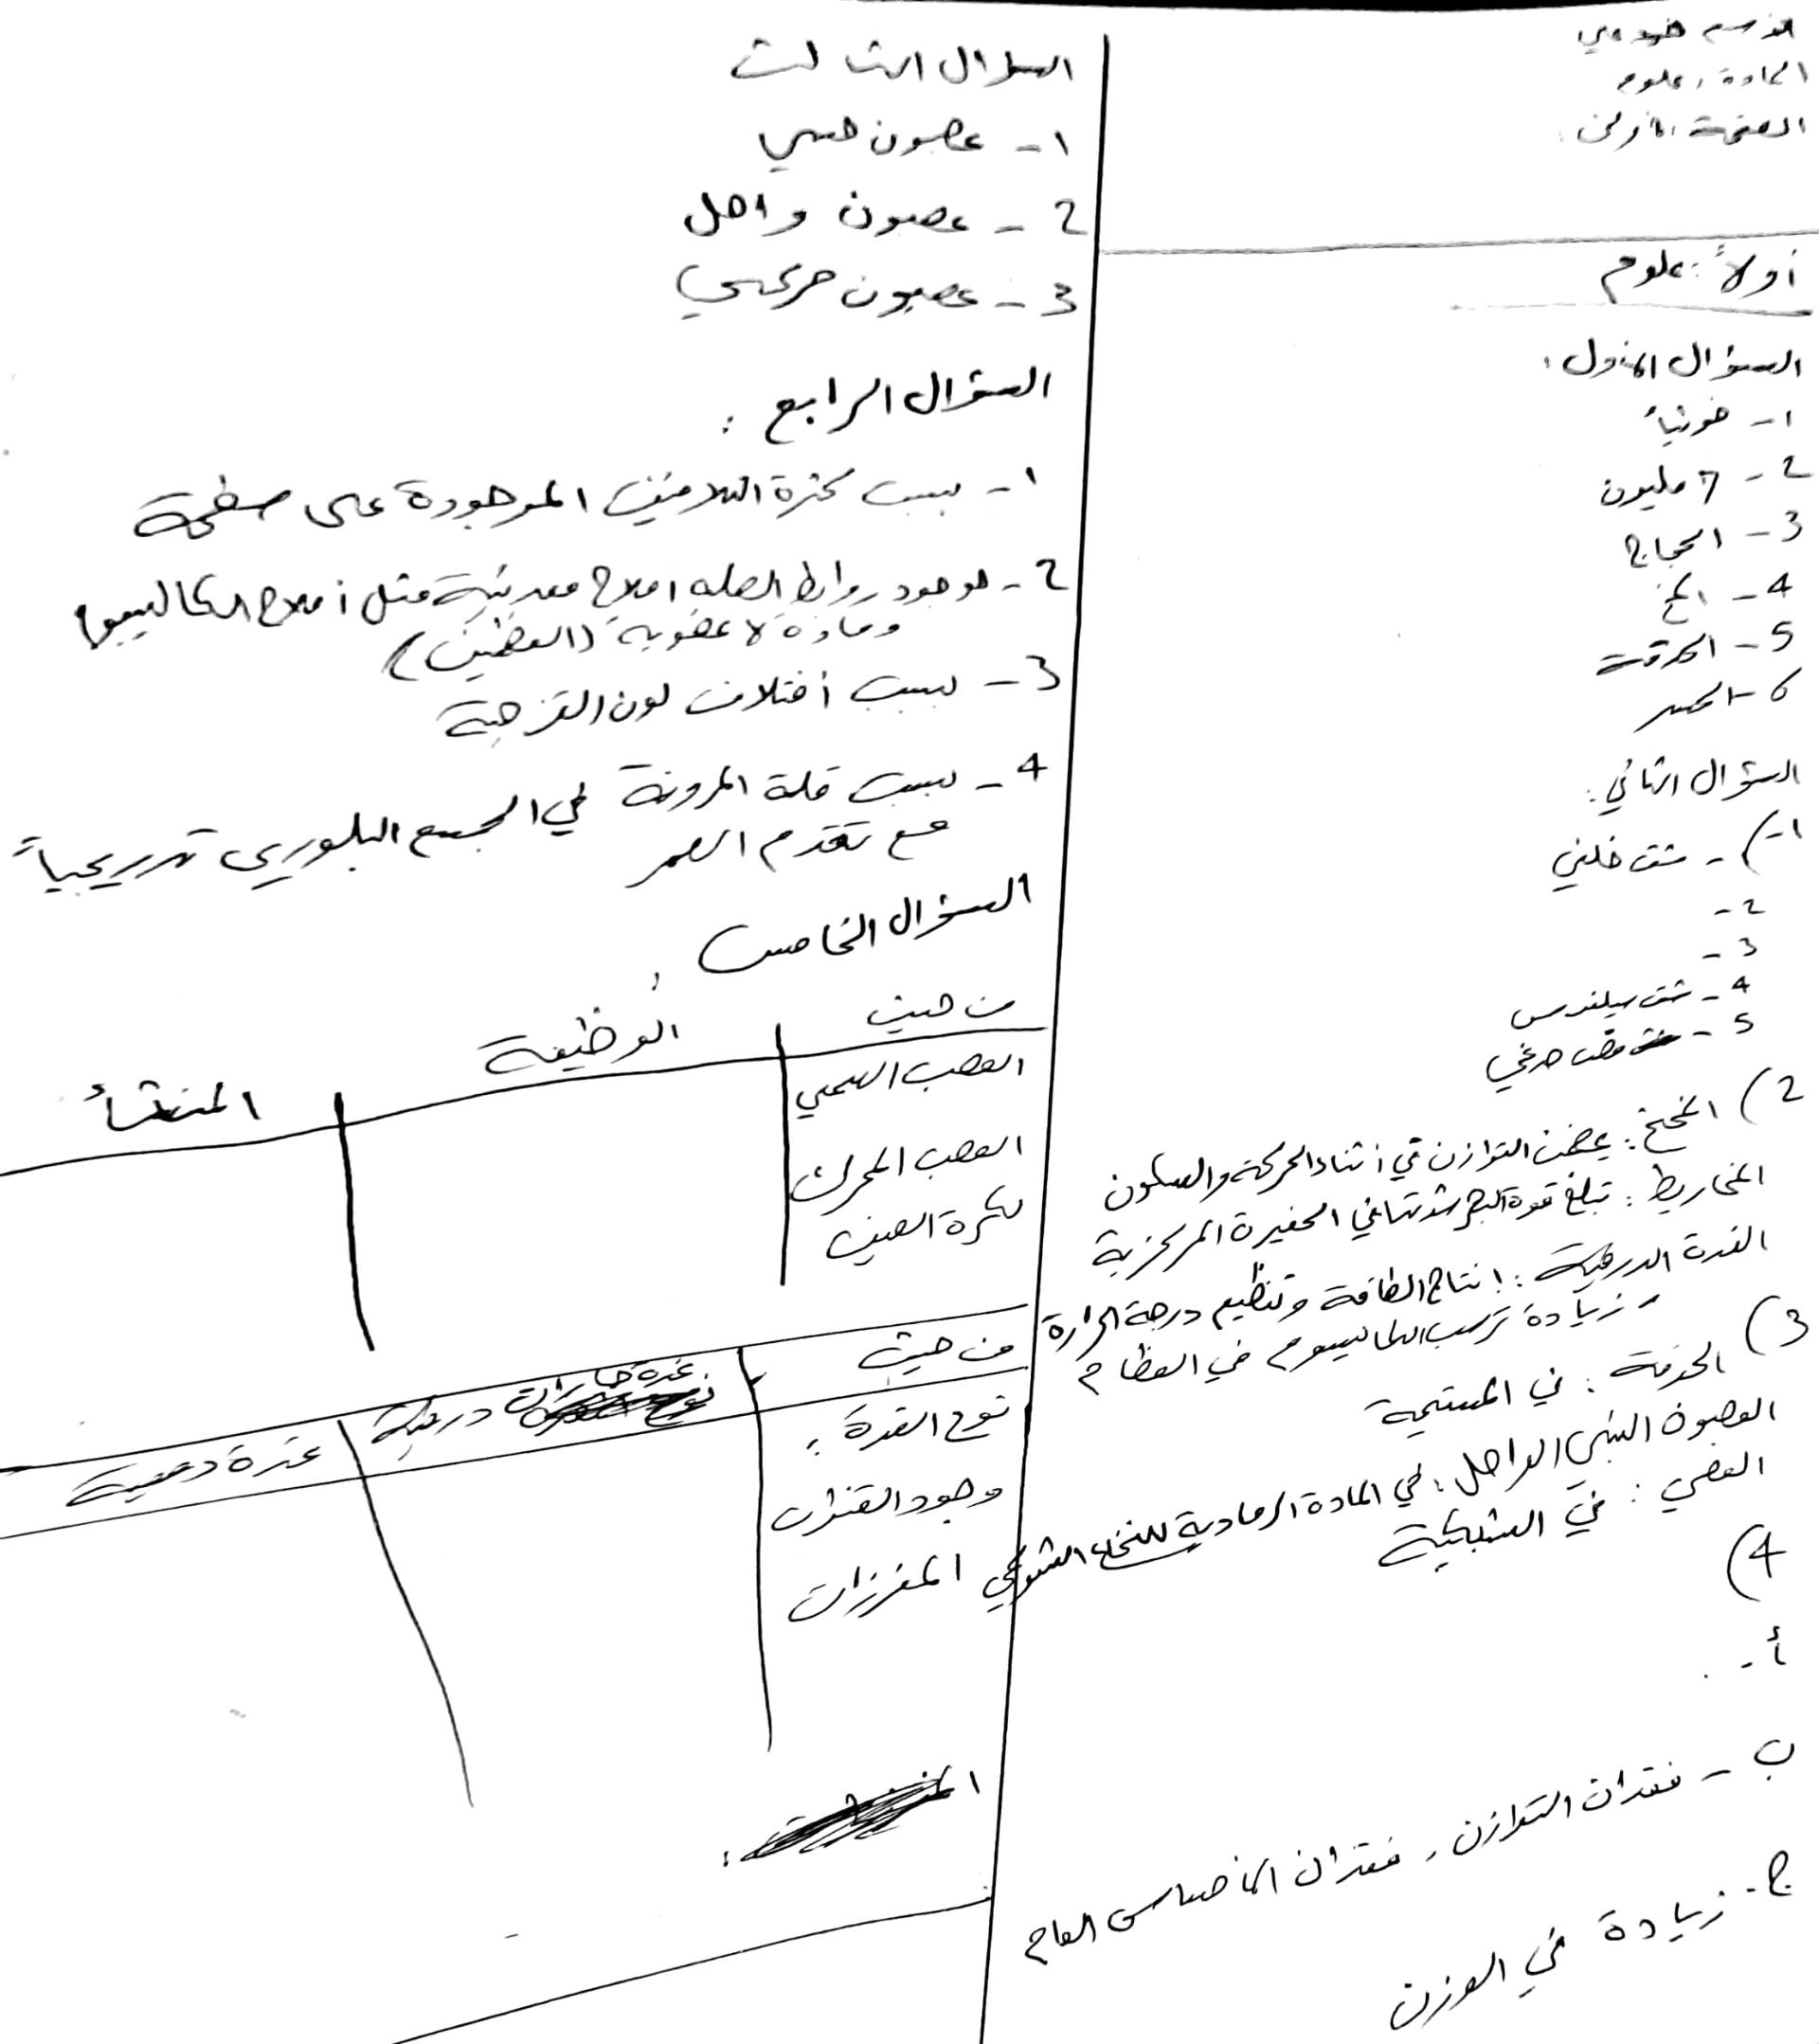 المادة: علوم
الصفحة الأولى:
أولاً: علوم
السؤال الأول:
1- ضوئياً
2- 7 مليون
3- الحجاج
4- المخ
5- القرنية
6- الجسر
السؤال الثاني:
1) - شق خلفي
2-
3-
4- شق سيلفيوس
5- فص صدغي
2) المخيخ: يضمن التوازن في أثناء الحركة والسكون
المخاريط: تبلغ قوة البصر شدتها في الحفيرة المركزية
الغدة الدرقية: إنتاج الطاقة وتنظيم درجة الحرارة
- زيادة ترسب الكالسيوم في العظام
3) القزحية: في المشيمية
العصبون البيني الواصل: في المادة الرمادية للنخاع الشوكي
العصي: في الشبكية
4)
أ-
ب- فقدان التوازن، فقدان الإحساس العام
ج- زيادة في الوزن
السؤال الثالث
1- عصبون حسي
2- عصبون واصل
3- عصبون حركي
السؤال الرابع:
1- بسبب كثرة التلافيف الموجودة على سطحة
2- لوجود روابط املاح معدنية مثل أملاح الكاليسيوم
ومادة لا عضوية (العظين)
3- بسبب أختلاف لون القزحية
4- بسبب قلة المرونة في الجسم البلوري تدريجياً
مع تقدم العمر
السؤال الخامس:
من حيث الوظيفة المنشأ
العصب السمعي
العصب المحرك
لكرة العين
من حيث غدة جارات درقية غدة دمعية
نوع الغدة:
وجود القنوات
المفرزات